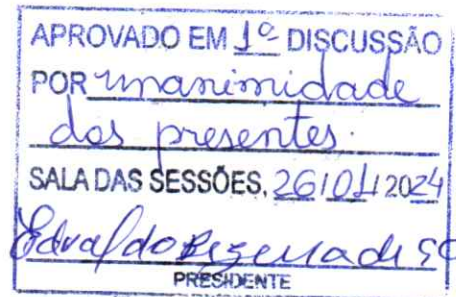 APROVADO EM 1º DISCUSSÃO
POR unanimidade
dos presentes.
SALA DAS SESSÕES, 26/01/2024
Edvaldo Bezerra de
PRESIDENTE